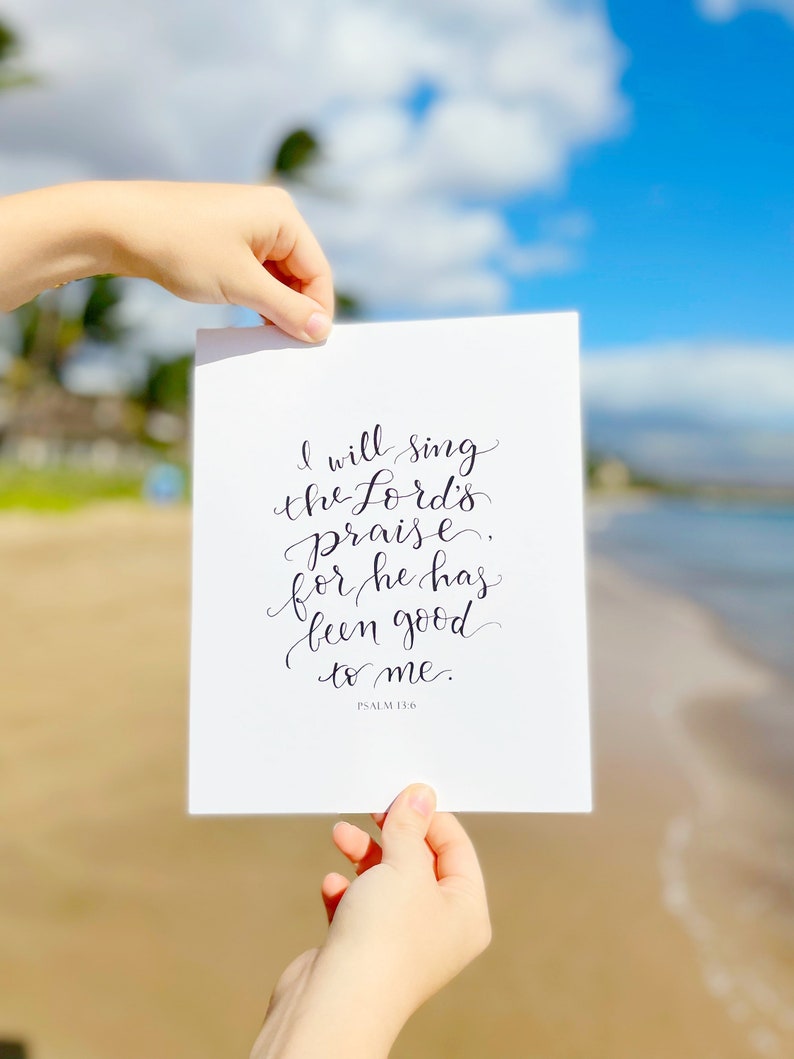 I will sing
the Lord's
praise,
for he has
been good
to me.
PSALM 13:6